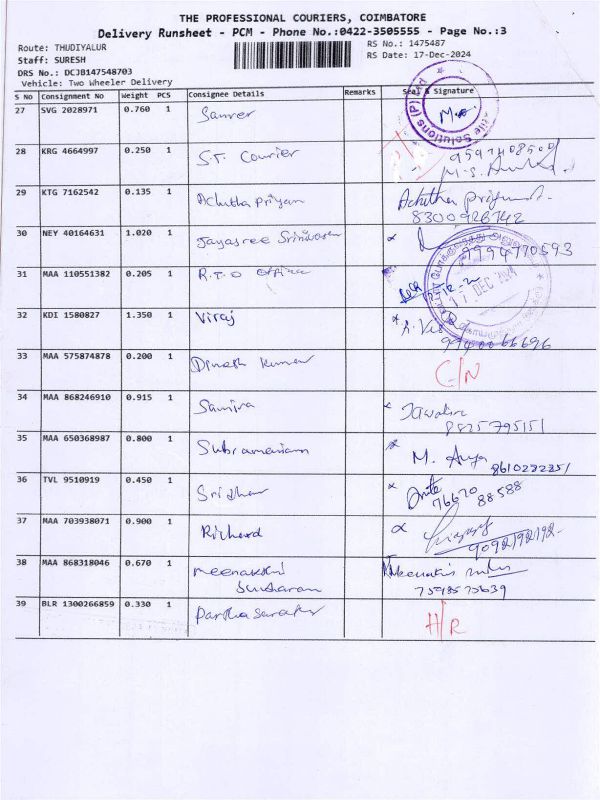 THE PROFESSIONAL COURIERS, COIMBATORE
Delivery Runsheet - PCM - Phone No.:0422-3505555 - Page No.:3
Route: THUDIYALUR RS No.: 1475487
Staff: SURESH RS Date: 17-Dec-2024
DRS No.: DCJB147548703
Vehicle: Two Wheeler Delivery
S NO Consignment No Weight PCS Consignee Details Remarks Seal & Signature
27 SVG 2028971 0.760 1
28 KRG 4664997 0.250 1 S.T. Courier
M.S.
29 KTG 7162542 0.135 1 Achutha Priyan Achutha
8300926742
30 NEY 40164631 1.020 1 Jayasree 9994770593
31 MAA 110551382 0.205 1 R.T.O Office
17 DEC 2024
32 KDI 1580827 1.350 1 Viraj
9940066696
33 MAA 575874878 0.200 1 Dinesh Kumar C/N
34 MAA 868246910 0.915 1
8825795151
35 MAA 650368987 0.800 1 Subramaniam M. Anya
36 TVL 9510919 0.450 1 Sridhar
76670 88588
37 MAA 703938071 0.900 1 Richard
38 MAA 868318046 0.670 1 Meenakshi
Sundaram 7598575639
39 BLR 1300266859 0.330 1 H/R